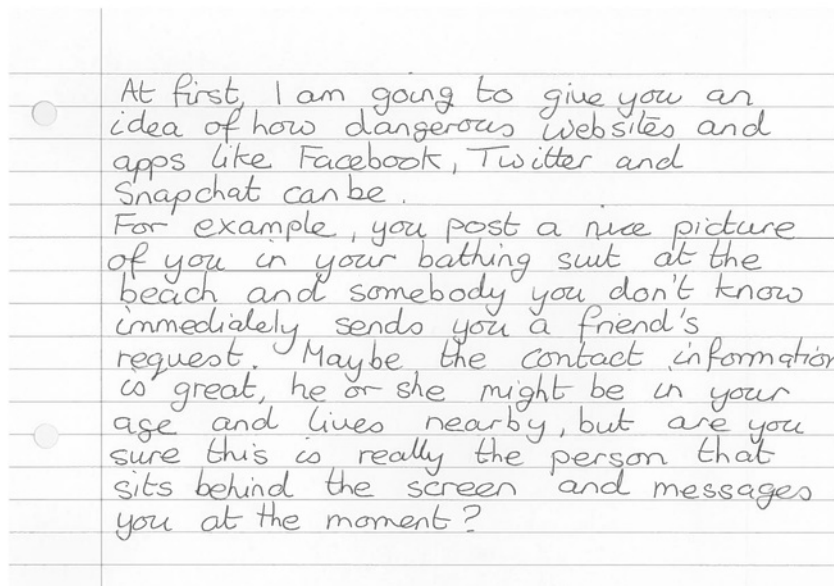 At first, I am going to give you an
idea of how dangerous websites and
apps like Facebook, Twitter and
Snapchat can be.
For example, you post a nice picture
of you in your bathing suit at the
beach and somebody you don't know
immediately sends you a friend's
request. Maybe the contact information
is great, he or she might be in your
age and lives nearby, but are you
sure this is really the person that
sits behind the screen and messages
you at the moment?